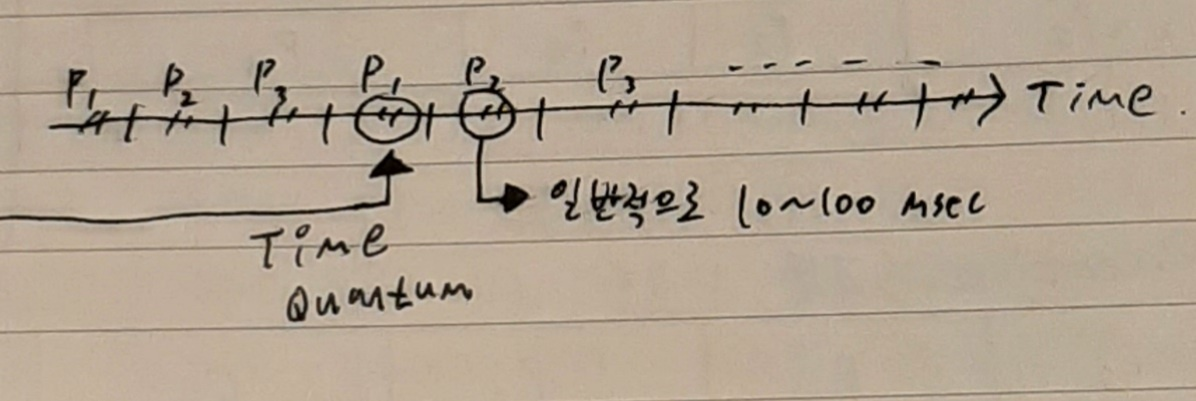 P₁ P₂ P₃ P₁ P₂ P₃ - - - - - -
Time.
일반적으로 10~100 msec
Time
Quantum